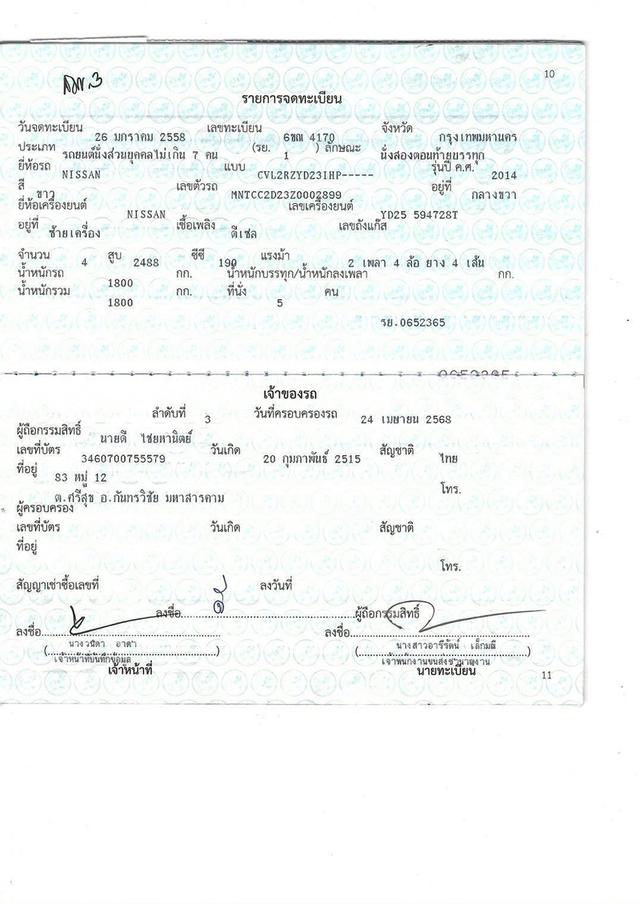 10
รายการจดทะเบียน
วันจดทะเบียน 26 มกราคม 2558 เลขทะเบียน 6ขณ 4170 จังหวัด กรุงเทพมหานคร
ประเภท รถยนต์นั่งส่วนบุคคลไม่เกิน 7 คน (รย. 1 ) ลักษณะ นั่งสองตอนท้ายบรรทุก
ยี่ห้อรถ NISSAN แบบ CVL2RZYD23IHP----- รุ่นปี ค.ศ. 2014
สี ขาว เลขตัวรถ MNTCC2D23Z0002899 อยู่ที่ กลางขวา
ยี่ห้อเครื่องยนต์ NISSAN เลขเครื่องยนต์ YD25 594728T
อยู่ที่ ซ้ายเครื่อง เชื้อเพลิง ดีเซล เลขถังแก๊ส
จำนวน 4 สูบ 2488 ซีซี 190 แรงม้า 2 เพลา 4 ล้อ ยาง 4 เส้น
น้ำหนักรถ 1800 กก. น้ำหนักบรรทุก/น้ำหนักลงเพลา กก.
น้ำหนักรวม 1800 กก. ที่นั่ง 5 คน
รย.0652365
เจ้าของรถ
ลำดับที่ 3 วันที่ครอบครองรถ 24 เมษายน 2568
ผู้ถือกรรมสิทธิ์ นายดี ไชยหานิตย์
เลขที่บัตร 3460700755579 วันเกิด 20 กุมภาพันธ์ 2515 สัญชาติ ไทย
ที่อยู่ 83 หมู่ 12
โทร.
ต.ศรีสุข อ.กันทรวิชัย มหาสารคาม
ผู้ครอบครอง
เลขที่บัตร วันเกิด สัญชาติ
ที่อยู่
โทร.
สัญญาเช่าซื้อเลขที่ ลงวันที่
ลงชื่อ ดี ผู้ถือกรรมสิทธิ์
ลงชื่อ ลงชื่อ
(นางวนิดา อาดำ) (นางสาวอารีรัตน์ เล็กมลี)
เจ้าหน้าที่บันทึกข้อมูล เจ้าพนักงานขนส่งชำนาญงาน
เจ้าหน้าที่ นายทะเบียน
11